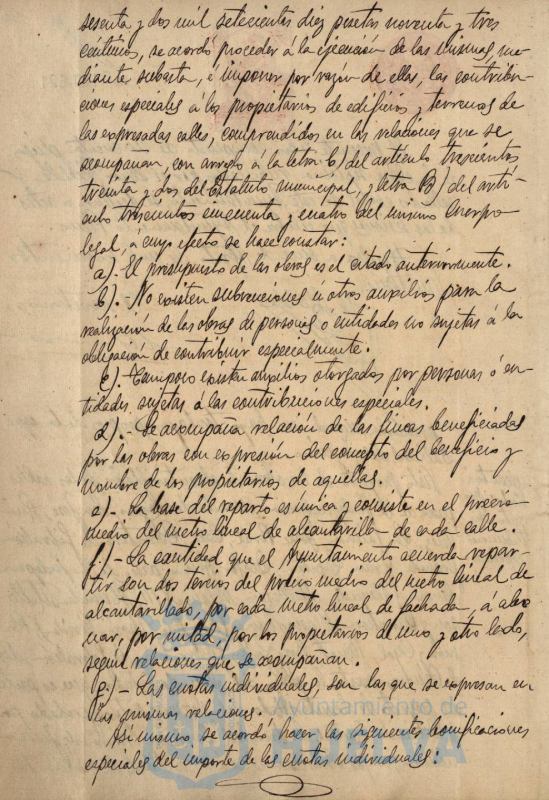 sesenta y dos mil setecientos diez pesetas noventa y tres
céntimos, se acordó proceder á la ejecución de las mismas, me-
diante subasta, é imponer por razón de ellas, las contribu-
ciones especiales á los propietarios de edificios y terrenos de
las expresadas calles, comprendidos en las relaciones que se
acompañan, con arreglo á la letra b) del artículo trescientos
treinta y dos del Estatuto municipal, y letra B) del artí-
culo trescientos cincuenta y cuatro del mismo Cuerpo
legal, á cuyo efecto se hace constar:
a).- El presupuesto de las obras es el citado anteriormente.
b).- No existen subvenciones ú otros auxilios para la
realización de las obras de personas o entidades no sujetas á la
obligación de contribuir especialmente.
c).- Tampoco existen auxilios otorgados por personas ó en-
tidades sujetas á las contribuciones especiales.
d).- Se acompaña relación de las fincas beneficiadas
por las obras con expresión del concepto del beneficio y
nombre de los propietarios de aquellas.
e)- La base del reparto es única y consiste en el precio
medio del metro lineal de alcantarilla de cada calle.
f.)- La cantidad que el Ayuntamiento acuerda repar-
tir son dos tercios del precio medio del metro lineal de
alcantarillado, por cada metro lineal de fachada, á abo-
nar, por mitad, por los propietarios de uno y otro lado,
según relaciones que se acompañan.
g.)- Las cuotas individuales, son las que se expresan en
las mismas relaciones.
Ayuntamiento de
Asimismo se acordó hacer las siguientes bonificaciones
HUELVA
especiales del importe de las cuotas individuales: